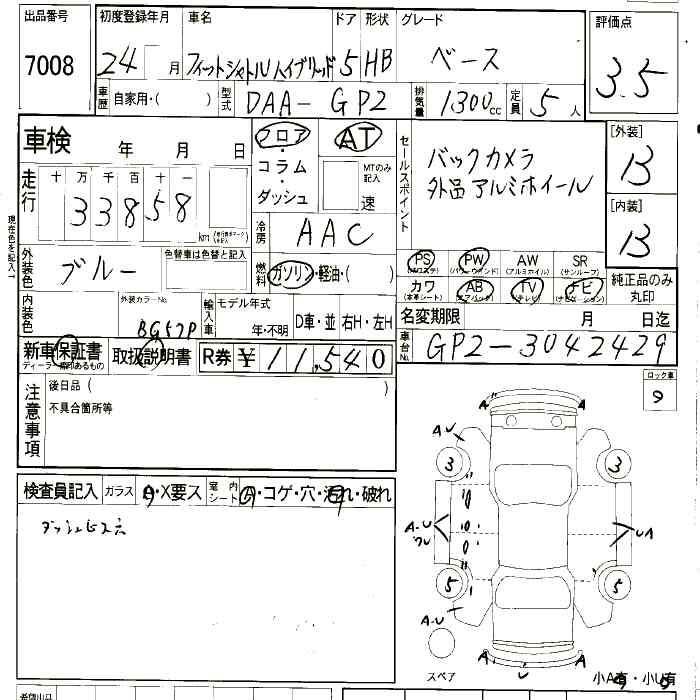 出品番号 初度登録年月 車名 ドア 形状 グレード 評価点
7008 24 月 フィットシャトルハイブリッド 5 HB ベース 3.5
車歴 自家用・( ) 型式 DAA-GP2 排気量 1300cc 定員 5人
車検 年 月 日 フロア AT セールスポイント バックカメラ [外装]
コラム・ MTのみ記入 外品アルミホイール B
走行 十 万 千 百 十 一 ダッシュ 速 [内装]
33858 km B
冷房 AAC
外装色 ブルー 色替車は色替と記入 燃料 ガソリン・軽油・( ) PS PW AW SR 純正品のみ丸印
(パワーウインド) (アルミホイル) (サンルーフ)
カワ AB TV ナビ
(本革シート) (エアバック) (テレビ) (ナビゲーション)
内装色 外装カラーNo. BG57P 輸入車 モデル年式 年・不明 D車・並 右H・左H 名変期限 月 日迄
新車保証書 取扱説明書 R券 ¥ 11,540 車台No. GP2-3042429
注意事項 後日品( ) ロック車
不具合箇所等
検査員記入 ガラス A・X要ス 室内シート コゲ・穴・汚れ・破れ
ダッシュビス穴
A A
A-U
3 3
A-U UA
5 5
A-U
A U A
スペア 小A有・小U有
現在色を記入
希望出品